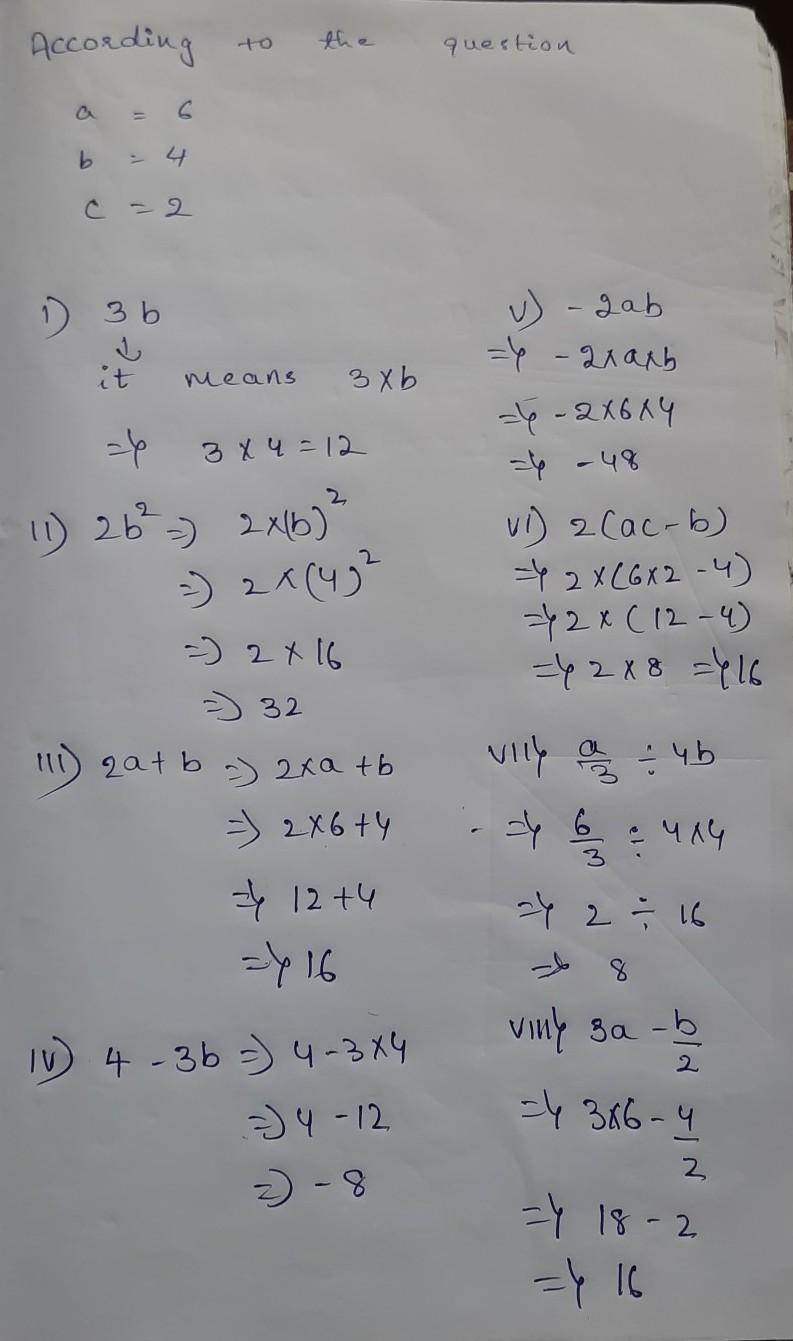 According to the question
a = 6
b = 4
c = 2
i) 3b
↓
it means 3 × b
=> 3 × 4 = 12
ii) 2b² => 2×(b)²
=> 2 × (4)²
=> 2 × 16
=> 32
iii) 2a + b => 2×a + b
=> 2×6 + 4
=> 12 + 4
=> 16
iv) 4 - 3b => 4 - 3×4
=> 4 - 12
=> - 8
v) - 2ab
=> - 2×a×b
=> - 2×6×4
=> - 48
vi) 2(ac - b)
=> 2×(6×2 - 4)
=> 2×(12 - 4)
=> 2 × 8 => 16
vii) a/3 ÷ 4b
=> 6/3 ÷ 4×4
=> 2 ÷ 16
=> 8
viii) 3a - b/2
=> 3×6 - 4/2
=> 18 - 2
=> 16